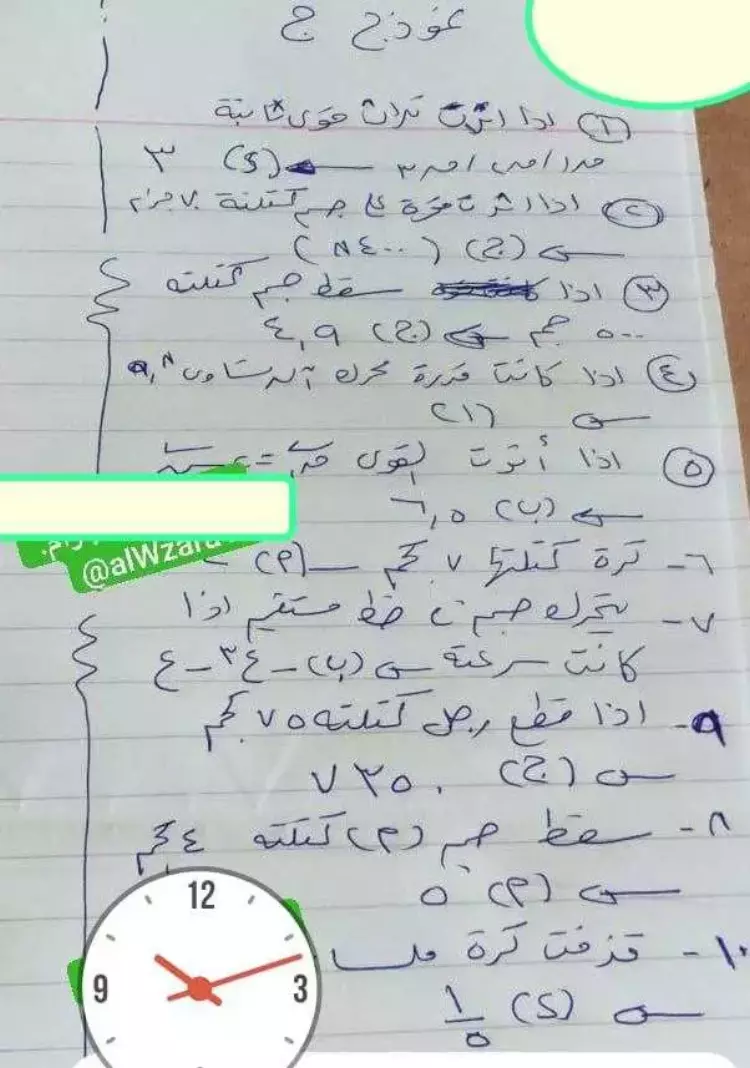 نموذج ج
① اذا اثرت ثلاث قوى ثابتة
(د) ٣
② اذا اثرت قوة على جسم كتلته ٧٠ جرام
(ج) (٨٤٠٠)
③ اذا سقط جسم كتلته
٥٠٠ جم (ج) ٤,٩
④ اذا كانت قدرة محرك آلة تساوى ٩,٨
(١)
⑤ اذا أثرت القوى
(ب) ٦,٥
@alWzara
٦- كرة كتلتها ٧ كجم (م)
٧- يتحرك جسم فى خط مستقيم اذا
كانت سرعته (ب) -٤ ٣-٤
٩- اذا قطع رجل كتلته ٧٥ كجم
(ج) ٧٣٥٠
٨- سقط جسم (م) كتلته ٤ كجم
(م) ٥
١٠- قذفت كرة ملسا
(د) ١/٥
12
9
3